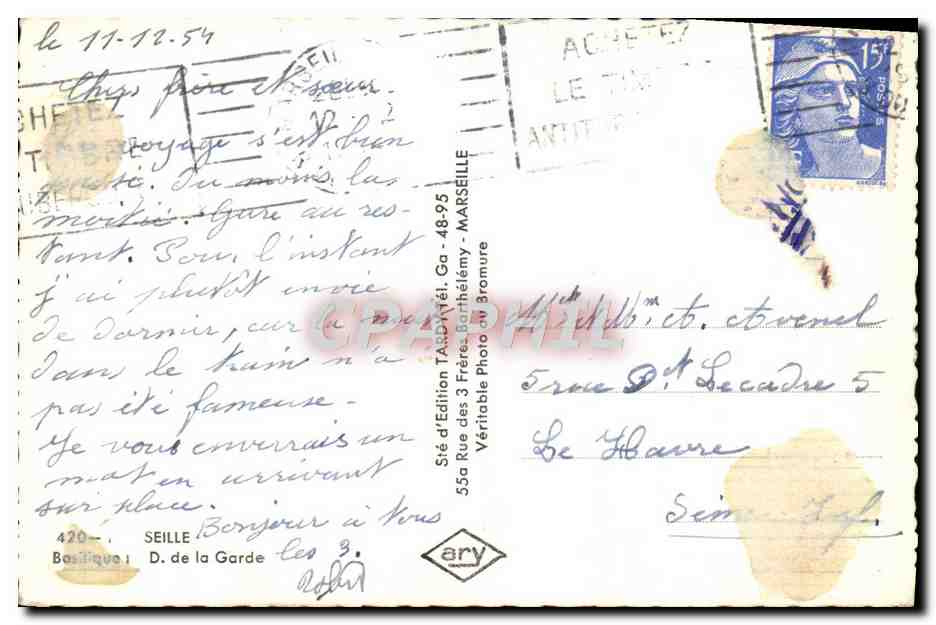 le 11-12-54
Chers frère et sœur.
voyage s'est bien
passé. Du moins la
moitié. Gare au res-
tant. Pour l'instant
j'ai plutôt envie
de dormir, car la nuit
dans le train n'a
pas été fameuse.
Je vous enverrais un
mot en arrivant
sur place.
Bonjour à vous
les 3.
Robert
420 - SEILLE
Basilique D. de la Garde
Sté d'Edition TARDY Tél. Ga - 48-95
55a Rue des 3 Frères Barthélémy - MARSEILLE
Véritable Photo au Bromure
ary
ACHETEZ
LE TIM
ANTIT
CHETEZ
TIMBRE
15F
POSTES
A. Avenel
5 rue Dr Lecadre 5
Le Havre
Seine
CPAPHIL